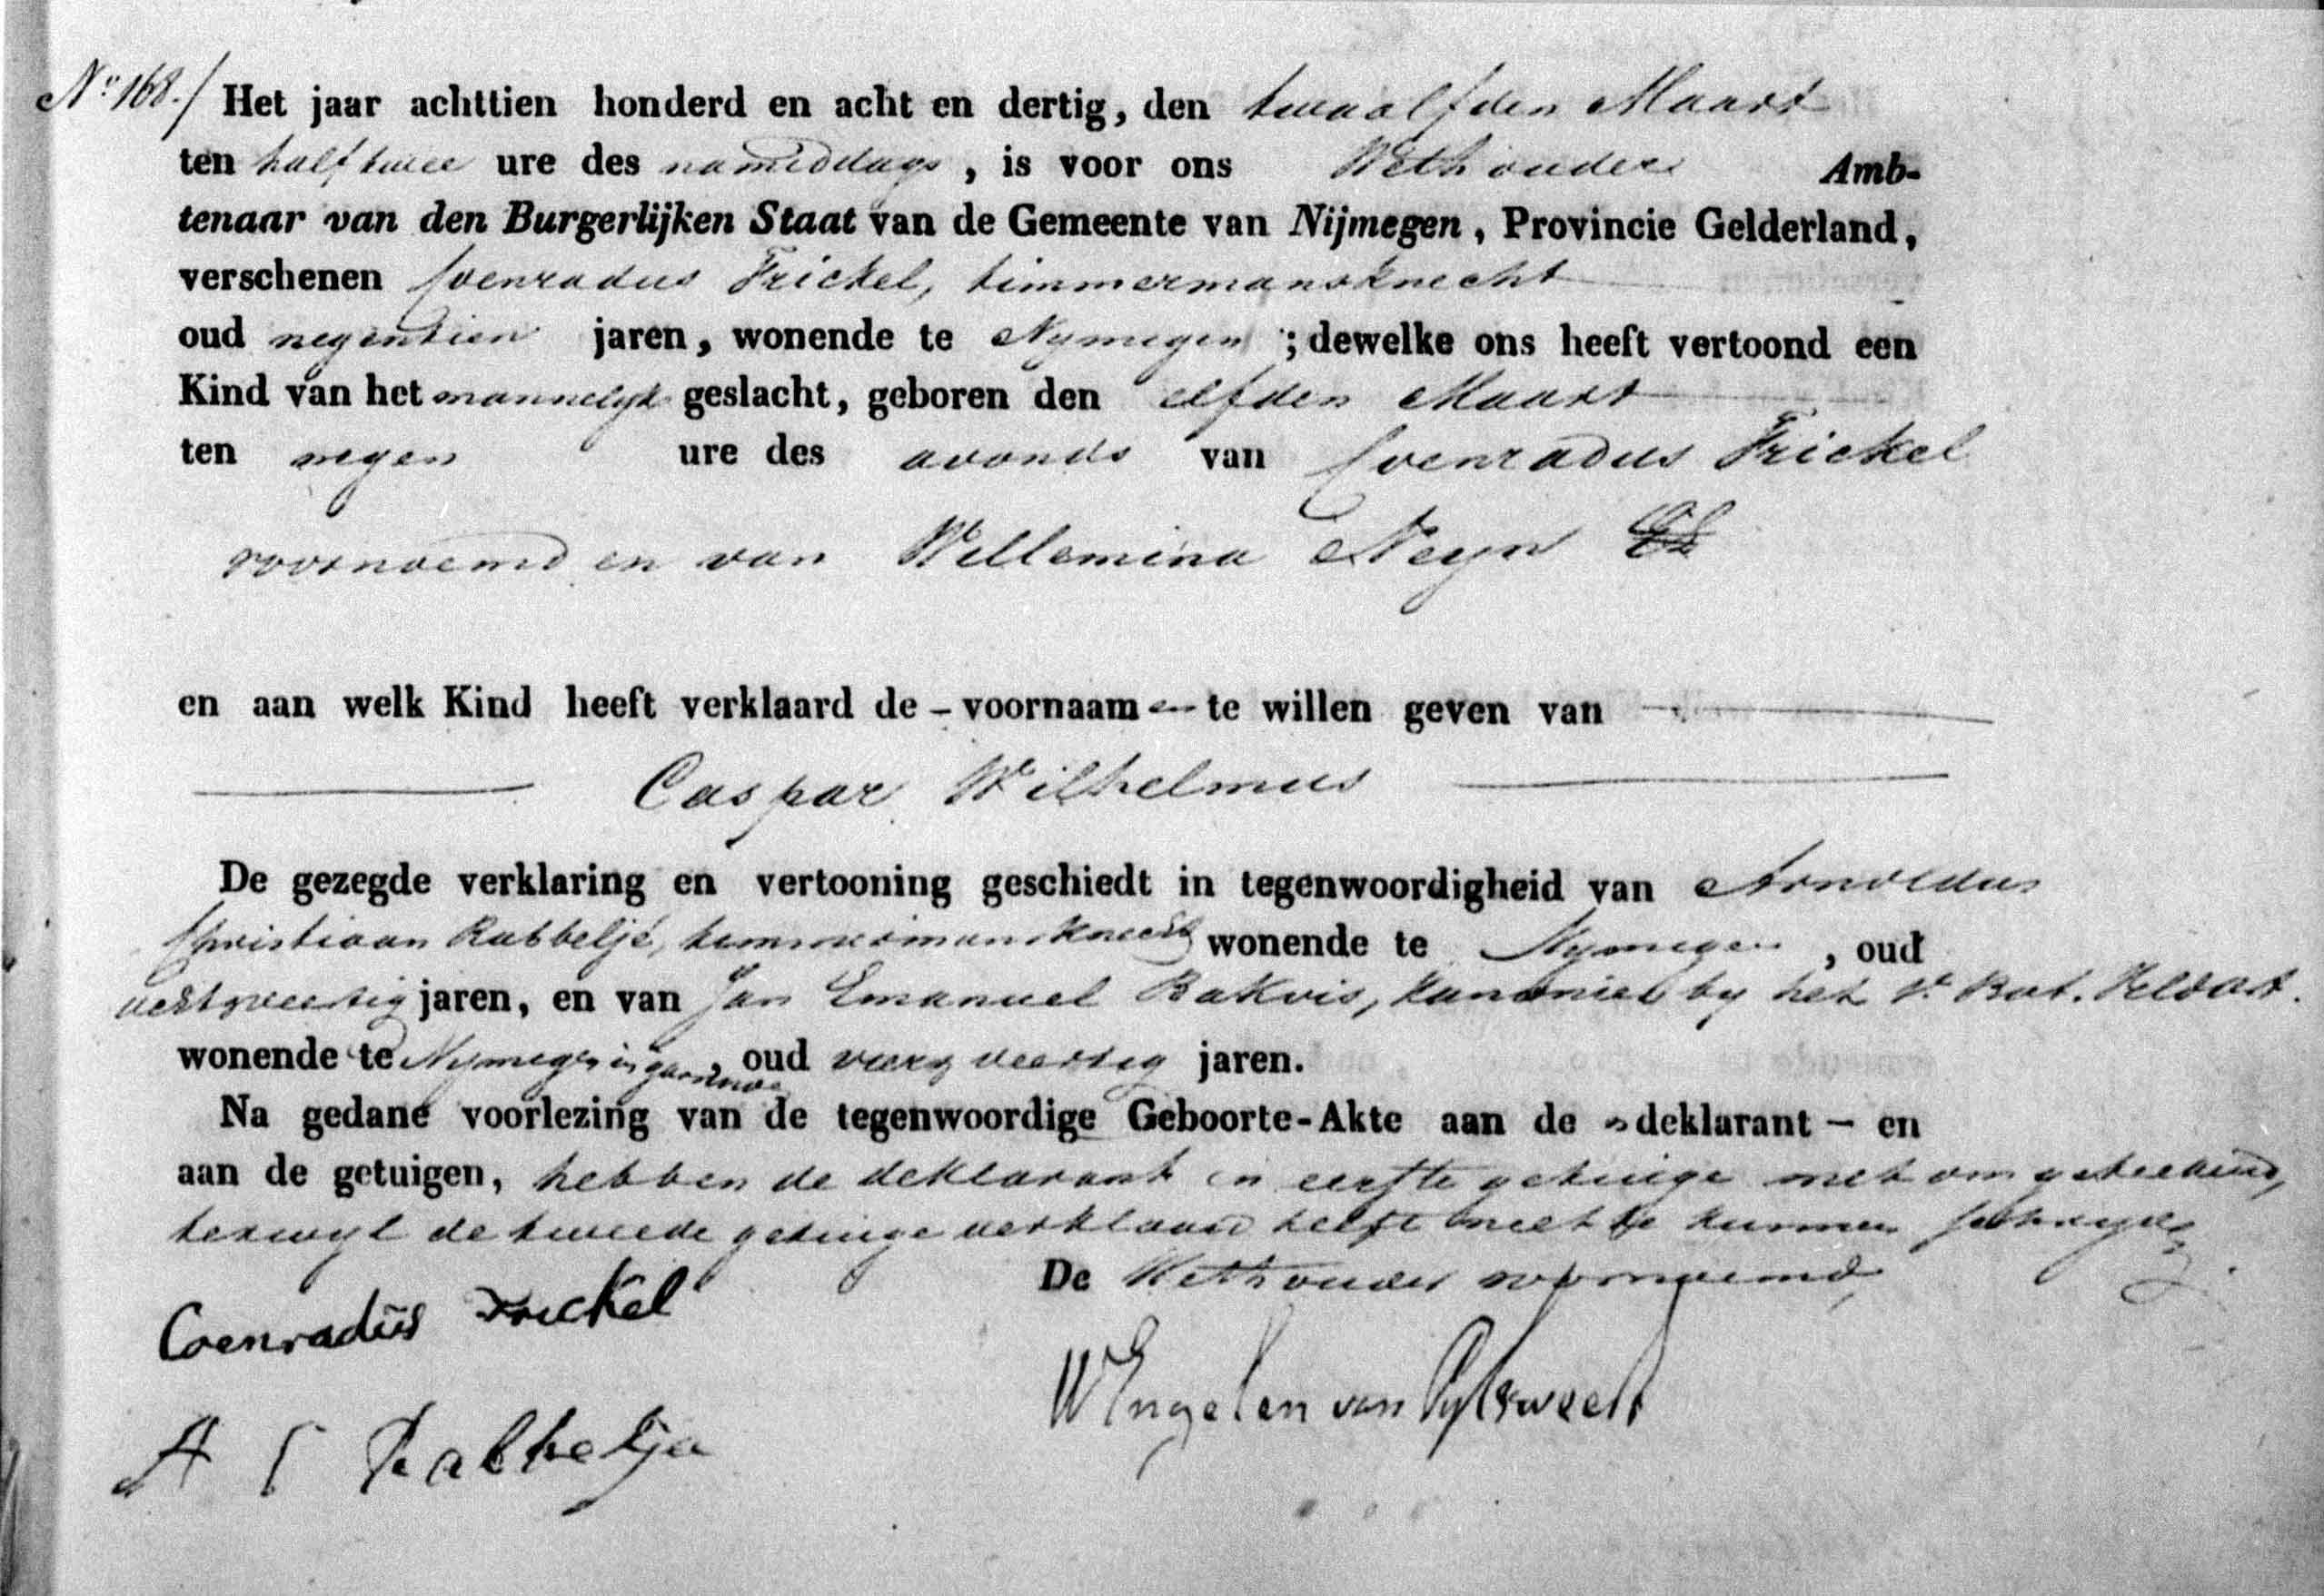 No 168./ Het jaar achttien honderd en acht en dertig, den twaalfden Maart
ten half twee ure des namiddags, is voor ons Wethouder Amb-
tenaar van den Burgerlijken Staat van de Gemeente van Nijmegen, Provincie Gelderland,
verschenen Coenradus Frickel, timmermansknecht
oud negentien jaren, wonende te Nymegen ; dewelke ons heeft vertoond een
Kind van het mannelyk geslacht, geboren den elfden Maart
ten negen ure des avonds van Coenradus Frickel
voornoemd en van Willemina Neyn
en aan welk Kind heeft verklaard de – voornaam en te willen geven van
Caspar Wilhelmus
De gezegde verklaring en vertooning geschiedt in tegenwoordigheid van Arnoldus
Christiaan Rabbeljé, timmermansknecht wonende te Nymegen, oud
jaren, en van Jan Emanuel Bakvis, kanonier by het Bat. Veldart.
wonende te Nymegen in garnizoen, oud veertig jaren.
Na gedane voorlezing van de tegenwoordige Geboorte-Akte aan de deklarant – en
aan de getuigen, hebben de deklarant en eerste getuige met ons geteekend,
terwyl de tweede getuige verklaard heeft niet te kunnen schryven.
De Wethouder voornoemd,
Coenradus Frickel
W Engelen van Pylsweert
A C Rabbelja